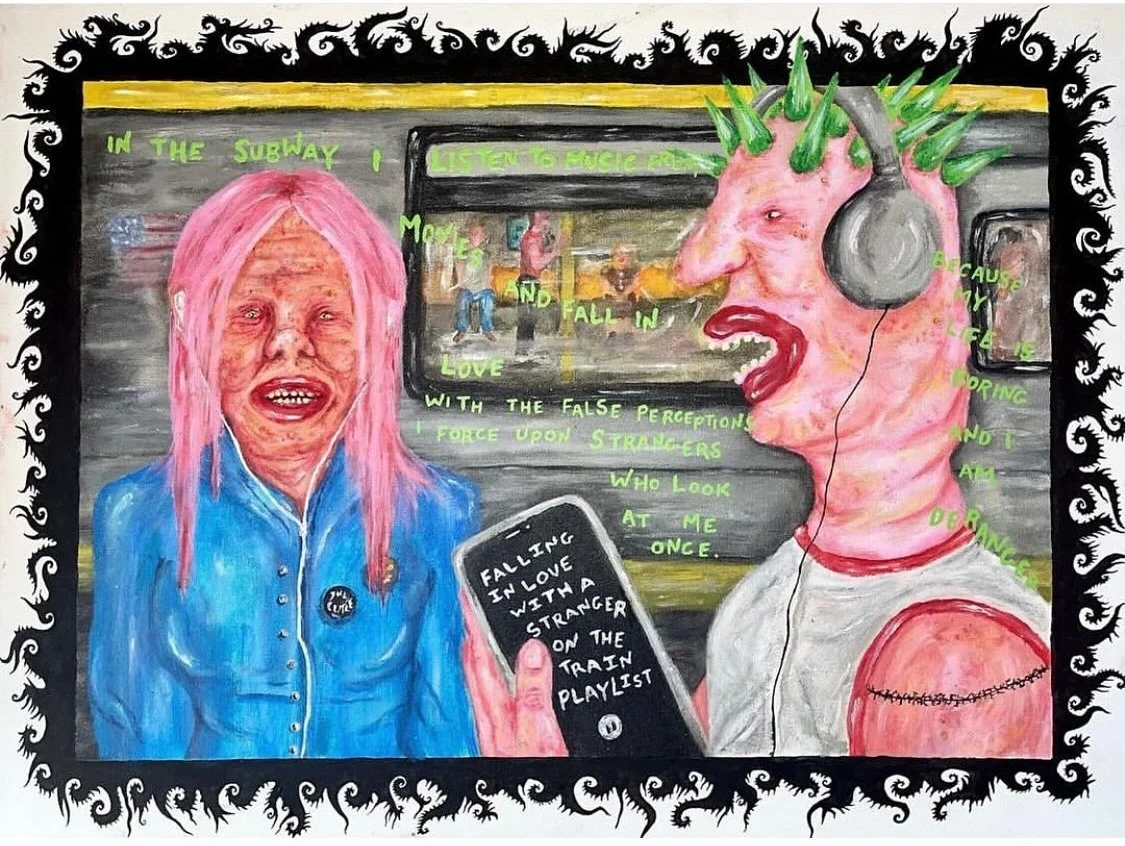 IN THE SUBWAY I LISTEN TO MUSIC
MOVIES
AND FALL IN
LOVE
WITH THE FALSE PERCEPTIONS
I FORCE UPON STRANGERS
WHO LOOK
AT ME
ONCE.
BECAUSE
MY
LIFE IS
BORING
AND I
AM
DERANGED
FALLING
IN LOVE
WITH A
STRANGER
ON THE
TRAIN
PLAYLIST